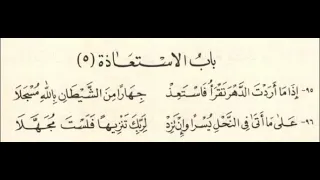 بَابُ الاسْتِعَاذَة (٥)
٩٥- إِذَا مَا أَرَدْتَ الدَّهْرَ تَقْرَأُ فَاسْتَعِذْ جِهَارًا مِنَ الشَّيْطَانِ بِاللَّهِ مُسْجَلَا
٩٦- عَلَى مَا أَتَى فِي النَّحْلِ يُسْرًا وَإِنْ تَزِدْ لِرَبِّكَ تَنْزِيهًا فَلَسْتَ مُجَهَّلَا